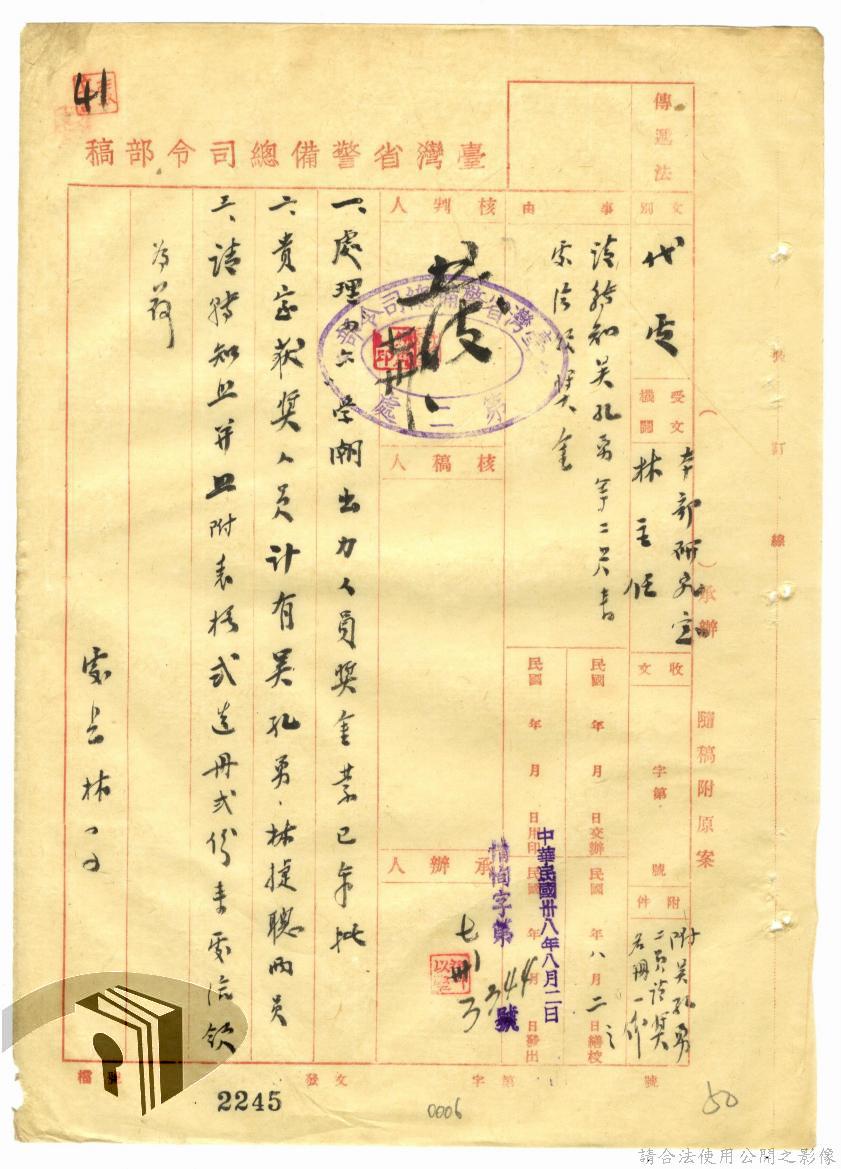 41
臺灣省警備總司令部稿
傳遞法
文別
代電
受文機關
本部研究室
林主任
(　)承辦
隨稿附原案
裝訂線
收文
字第
號
附件
附吳孔勇
二員請獎
名冊一份
事由
請轉知吳孔勇等二員書
來信領獎金
民國　年　月　日交辦
民國　年八月二日繕校
民國　年　月　日用印
民國　年　月　日發出
中華民國卅八年八月二日
字第3344號
核判人
臺灣省警備總司令部
第二處
核稿人
承辦人
七
卅
一、處理四六學潮出力人員獎金業已奉批
二、貴室获奖人員計有吳孔勇、林捷聰兩員
三、請轉知並附表格式造冊弍份來處洽領
為荷
處長林
檔號
發文
字
第
號
2245
0006
50
請合法使用公開之影像